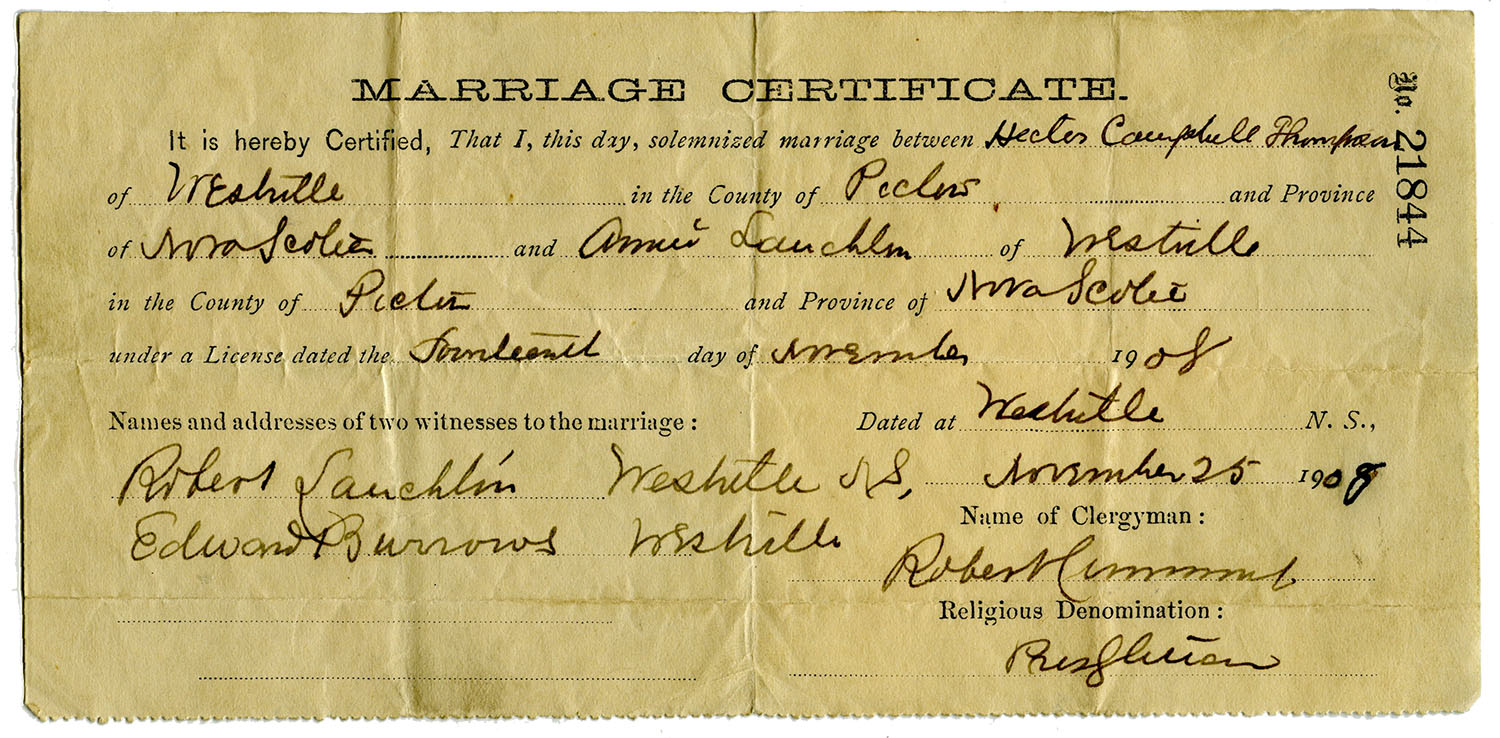 MARRIAGE CERTIFICATE.
No. 21844
It is hereby Certified, That I, this day, solemnized marriage between Hector Campbell Thompson
of Westville in the County of Pictou and Province
of Nova Scotia and Annie Lauchlin of Westville
in the County of Pictou and Province of Nova Scotia
under a License dated the Fourteenth day of November 1908
Names and addresses of two witnesses to the marriage: Dated at Westville N. S.,
Robert Lauchlin Westville N.S, November 25 1908
Name of Clergyman:
Edward Burrows Westville
Robert
Religious Denomination:
Presbyterian